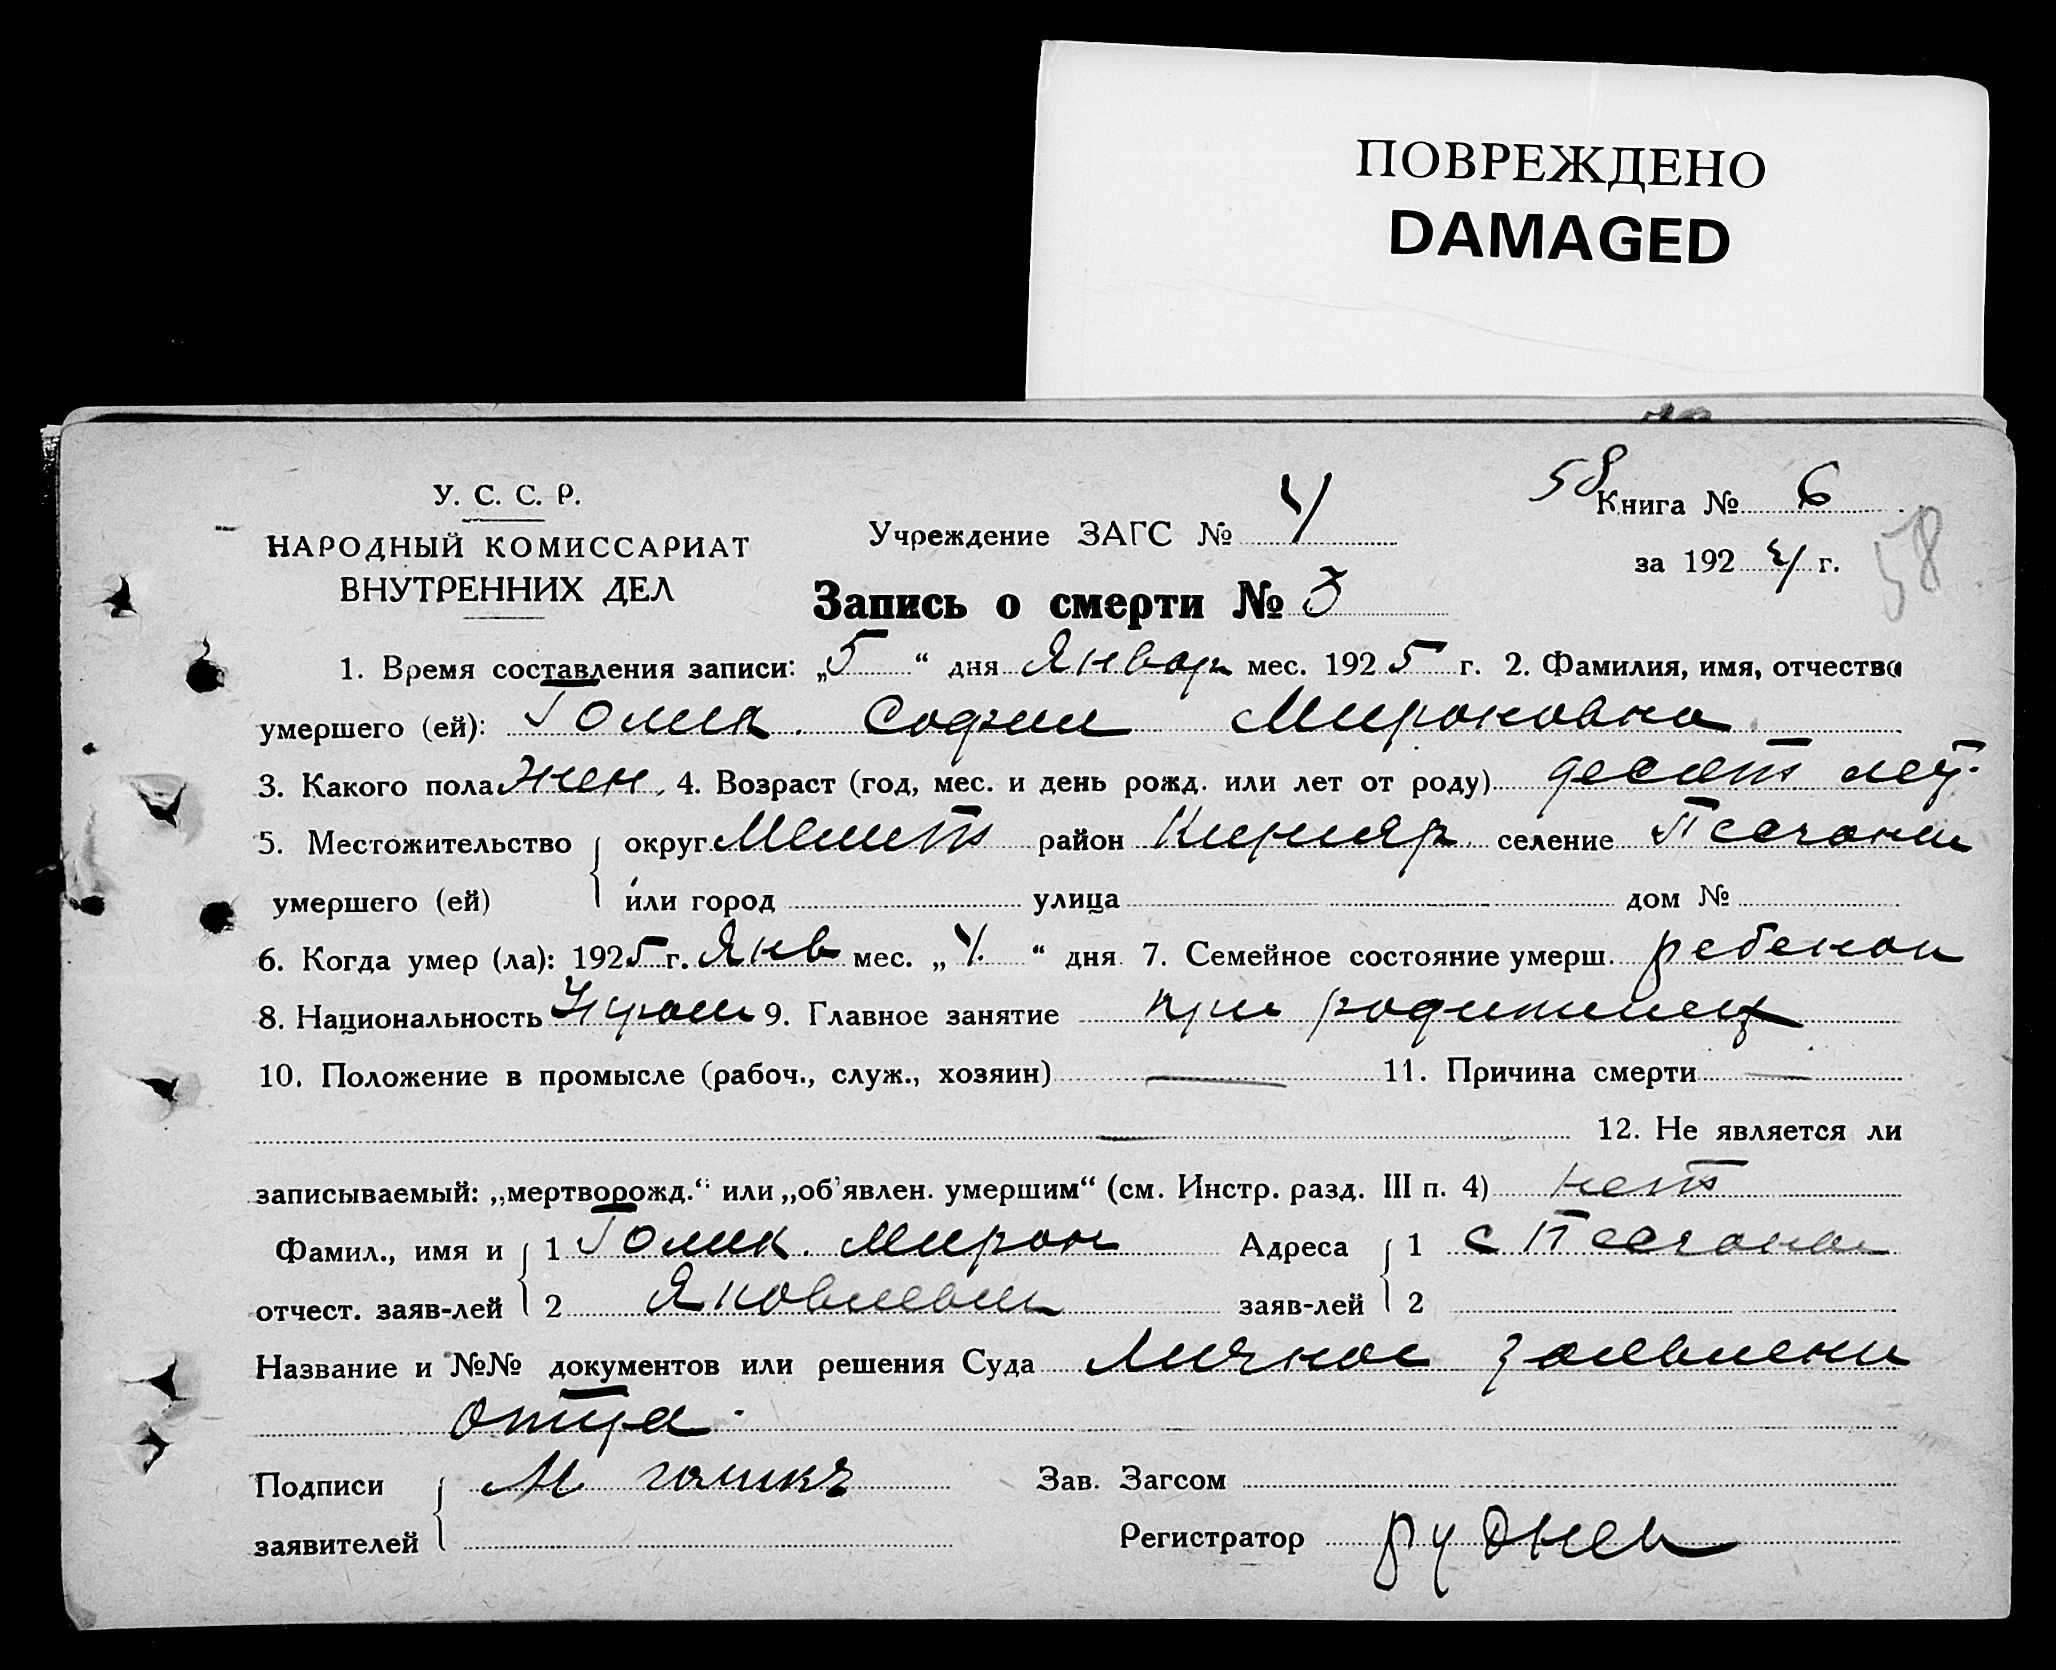 ПОВРЕЖДЕНО
DAMAGED
58 Книга № 6
У. С. С. Р.
НАРОДНЫЙ КОМИССАРИАТ
ВНУТРЕННИХ ДЕЛ
Учреждение ЗАГС № 4
за 1924 г.
58
Запись о смерти № 3
1. Время составления записи: „5“ дня Январ мес. 1925 г. 2. Фамилия, имя, отчество
умершего (ей): Голик София Мироновна
3. Какого пола жен. 4. Возраст (год, мес. и день рожд. или лет от роду) десять лет.
5. Местожительство округ Мелит район селение Песчани
умершего (ей) или город улица дом №
6. Когда умер (ла): 1925 г. Янв мес. „4“ дня 7. Семейное состояние умерш. ребенок
8. Национальность Украин 9. Главное занятие при родителях
10. Положение в промысле (рабоч., служ., хозяин) — 11. Причина смерти —
— 12. Не является ли
записываемый: „мертворожд.“ или „об'явлен. умершим“ (см. Инстр. разд. III п. 4) нет
Фамил., имя и 1 Голик Мирон Адреса 1 с Песчаное
отчест. заяв-лей 2 Яковлевич заяв-лей 2
Название и №№ документов или решения Суда Личное заявлени
отца.
Подписи М голикъ Зав. Загсом
заявителей Регистратор Руднев